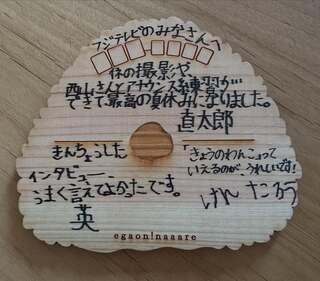 フジテレビのみなさんへ
体の撮影や、
西山さんとアナウンス練習が
できて最高の夏休みになりました。
直太郎
きんちょうした
インタビュー、
うまく言えてよかったです。
英
「きょうのわんこ」って
いえるのが、うれしいです!
けんたろう
egaon!naaare